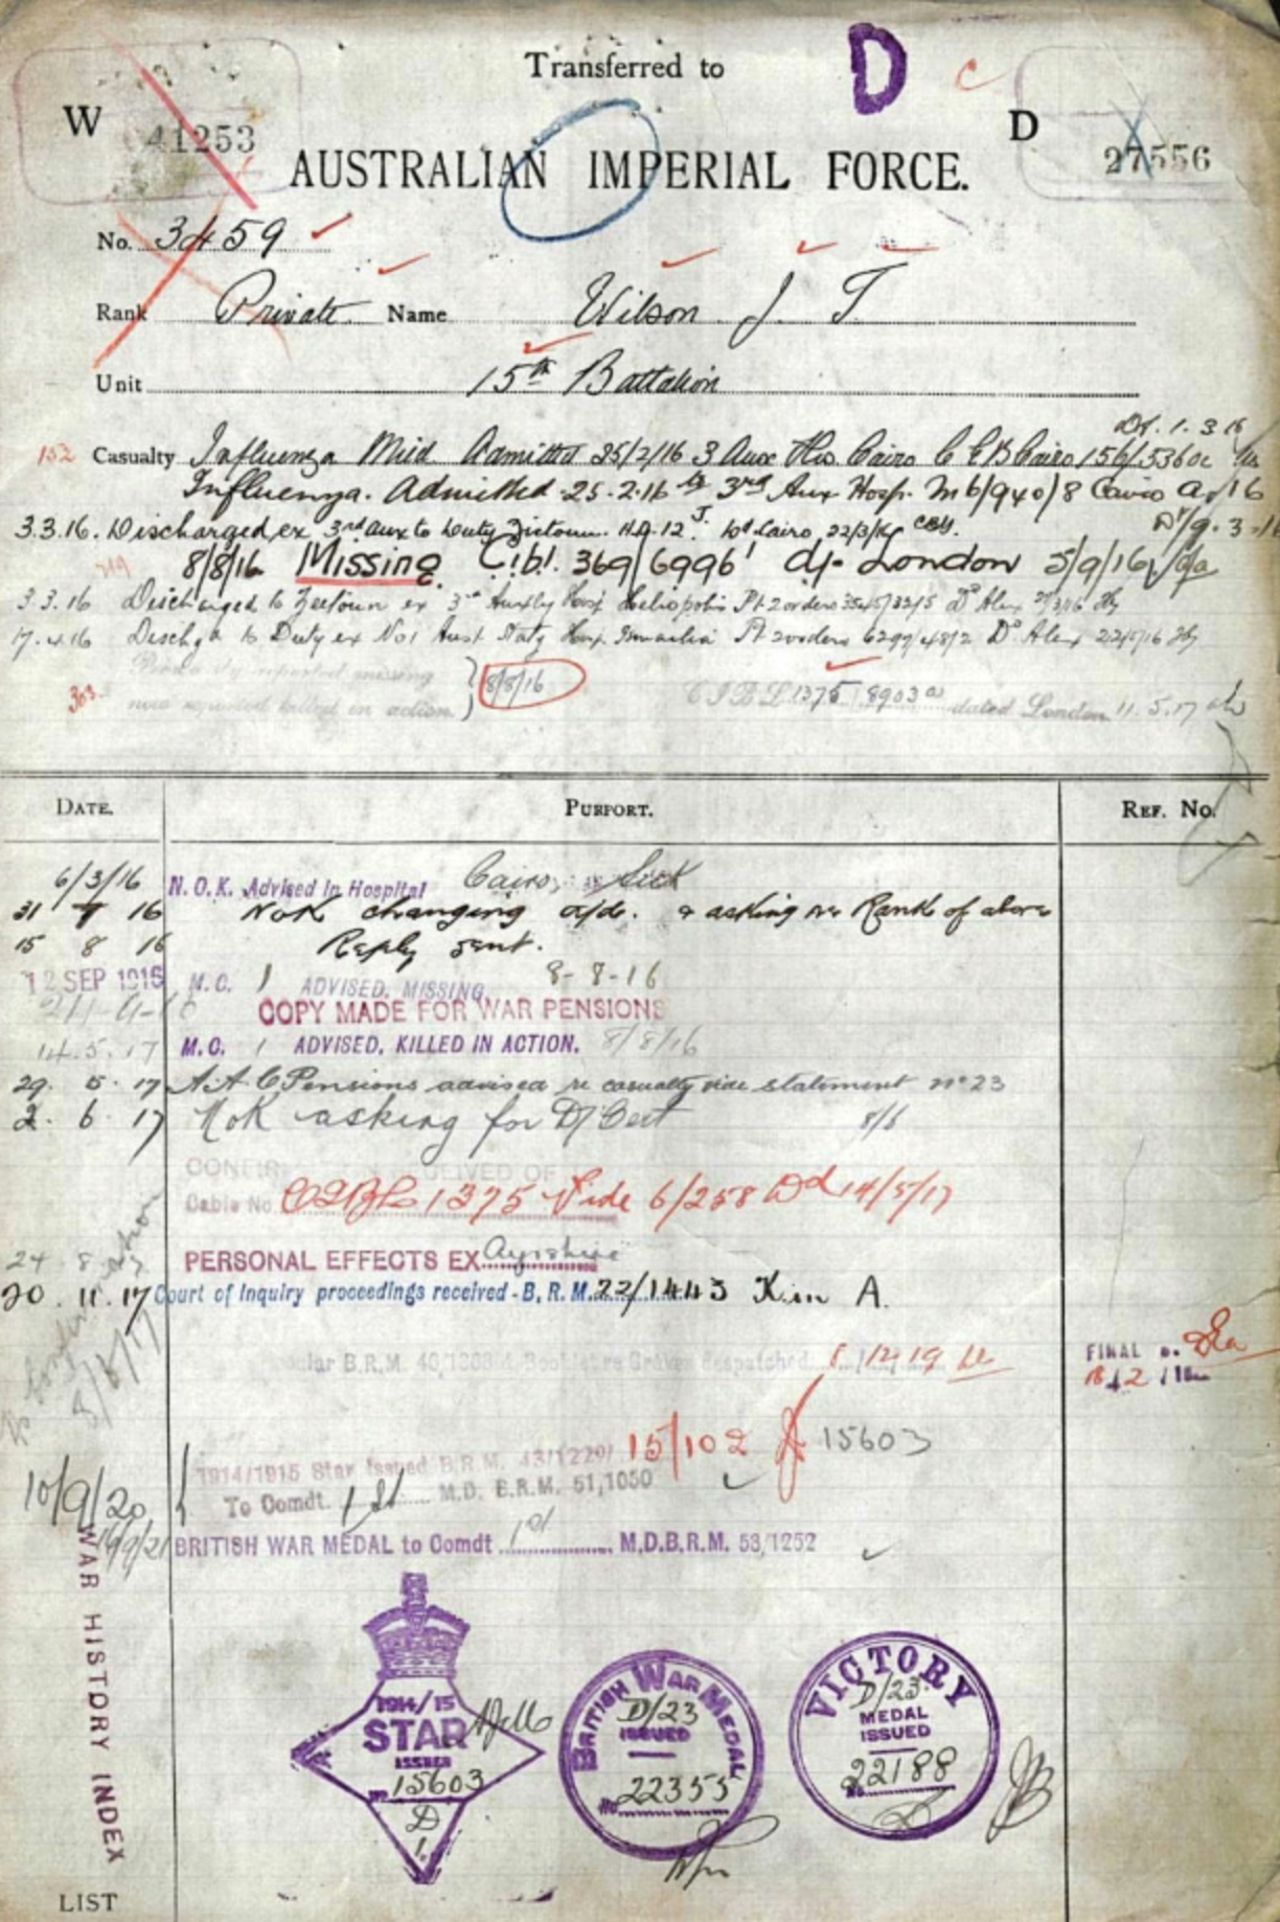 Transferred to
D
c
W
41253
D
27556
AUSTRALIAN IMPERIAL FORCE.
No. 3459
Rank Private Name Wilson J. T
Unit 15th Battalion
Dt. 1. 3 16
152 Casualty Influenza Mild Admitted 25/2/16 3 Aux Hos. Cairo C E B Cairo 156/5360c
Influenza. Admitted 25.2.16 to 3rd Aux Hosp. M6/940/8 Cairo
3.3.16. Discharged ex 3rd Aux to Duty Zietoun. H.Q.12 Dd Cairo 22/3/16
8/8/16 Missing C.b.l. 369/6996 d/- London 5/9/16
3.3.16 Discharged to Zeetoun ex 3rd Auxly Hosp Heliopolis Pt 2 orders D Alex
17.4.16 Dischgd to Duty ex No1 Aust Staty Hosp Ismailia Pt 2 orders 6299/48/2 Do Alex 22/5/16
303 Previously reported missing
now reported killed in action } 8/8/16 C I B L 1375/8903 dated London 11.5.17
DATE. PURPORT. REF. No.
6/3/16 N.O.K. Advised in Hospital Cairo, Sick
31 7 16 NoK changing a/d. & asking re Rank of above
15 8 16 Reply sent.
12 SEP 1916 M.C. 1 ADVISED. MISSING. 8-8-16
COPY MADE FOR WAR PENSIONS
14.5.17 M.C. 1 ADVISED. KILLED IN ACTION. 8/8/16
29. 5. 17 A.A.C Pensions advised re casualty vide statement no 23
2. 6. 17 NoK asking for D/Cert 8/8
Cable No. CIBL 1375 Vide 6/258 Dd 14/5/17
24 8 PERSONAL EFFECTS EX Ayrshire
20. 11. 17 Court of Inquiry proceedings received - B.R.M. 22/1443 Kin A.
B.R.M. Graves despatched
FINAL
15/102 15603
1914/1915 Star Issued B.R.M. 43/1229/
10/9/20 To Comdt. 1st M.D. B.R.M. 51,1050
BRITISH WAR MEDAL to Comdt 1st M.D.B.R.M. 53/1252
WAR HISTORY INDEX
1914/15
STAR
ISSUED
No 15603
D
1.
BRITISH WAR MEDAL
D/23
ISSUED
No 22355
VICTORY
D/23
MEDAL
ISSUED
No. 22188
LIST